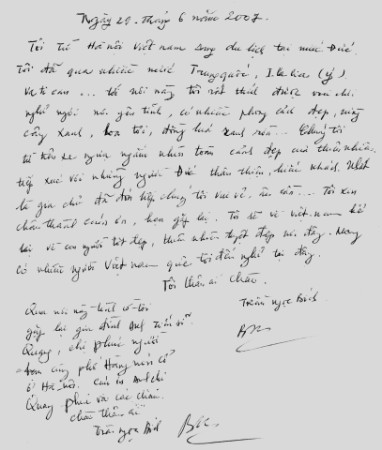 Ngày 20. tháng 6 năm 2007.
Tôi từ Hà nội Việt nam sang du lịch tại nước Đức.
Tôi đã qua nhiều nước Trung quốc, I.ta lia (ý)
Va ti can ... tới nơi này tôi rất thích được
nghỉ ngơi nơi yên tĩnh, có nhiều phong cảnh đẹp, rừng
công xanh, hoa tươi, đồng luá xanh rờn... Chúng tôi
từ trên xe ngựa ngắm nhìn toàn cảnh đẹp của thiên nhiên
tiếp xúc với những người Đức thân thiện, hiếu khách. Nhất
là gia chủ đã đón tiếp chúng tôi vui vẻ, ân cần... Tôi xin
chân thành cám ơn, hẹn gặp lại. Tôi sẽ về việt nam kể
lại về con người tốt đẹp, thiên nhiên tuyệt đẹp nơi đây. Mong
có nhiều người Việt nam qúa tới đến nghỉ tại đây.
Tôi thân ái chào.
Trần Ngọc Bích
Qua nơi này tình cờ tôi
gặp lại gia đình Anh
Quang, chị phúc người
cùng phố Hàng nón cũ
ở Hà nội. cám ơn Anh chị
Quang phúc và các cháu.
chào thân ái
Trần Ngọc Bích